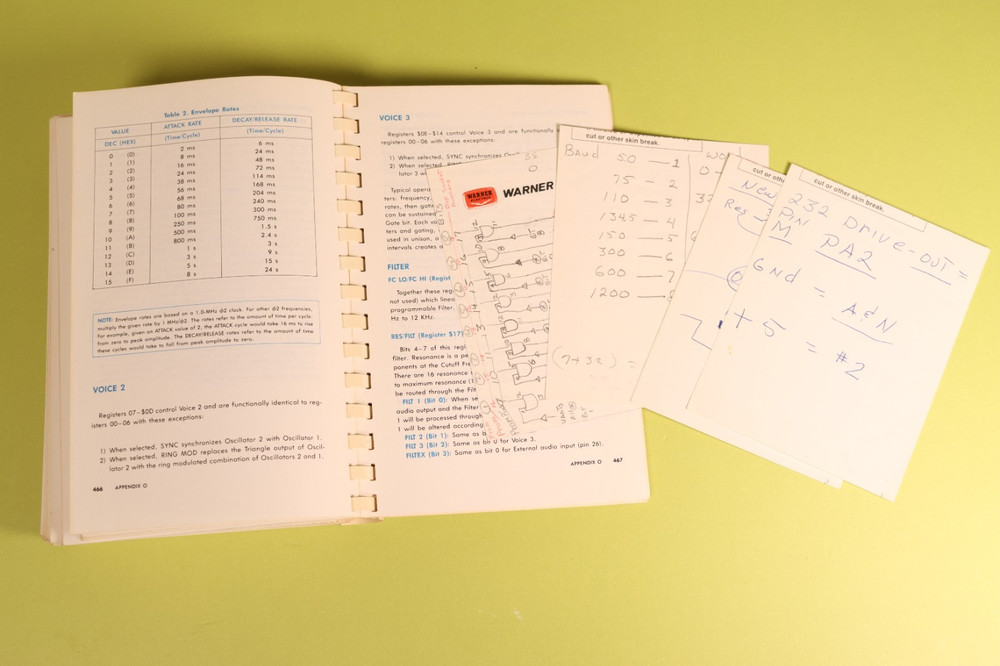 Table 2. Envelope Rates
VALUE ATTACK RATE DECAY/RELEASE RATE
DEC (HEX) (Time/Cycle) (Time/Cycle)
0 (0) 2 ms 6 ms
1 (1) 8 ms 24 ms
2 (2) 16 ms 48 ms
3 (3) 24 ms 72 ms
4 (4) 38 ms 114 ms
5 (5) 56 ms 168 ms
6 (6) 68 ms 204 ms
7 (7) 80 ms 240 ms
8 (8) 100 ms 300 ms
9 (9) 250 ms 750 ms
10 (A) 500 ms 1.5 s
11 (B) 800 ms 2.4 s
12 (C) 1 s 3 s
13 (D) 3 s 9 s
14 (E) 5 s 15 s
15 (F) 8 s 24 s
NOTE: Envelope rates are based on a 1.0-MHz Ø2 clock. For other Ø2 frequencies,
multiply the given rate by 1 MHz/Ø2. The rates refer to the amount of time per cycle.
For example, given an ATTACK value of 2, the ATTACK cycle would take 16 ms to rise
from zero to peak amplitude. The DECAY/RELEASE rates refer to the amount of time
these cycles would take to fall from peak amplitude to zero.
VOICE 2
Registers 07–$0D control Voice 2 and are functionally identical to reg-
isters 00–06 with these exceptions:
1) When selected, SYNC synchronizes Oscillator 2 with Oscillator 1.
2) When selected, RING MOD replaces the Triangle output of Oscil-
lator 2 with the ring modulated combination of Oscillators 2 and 1.
466 APPENDIX O
VOICE 3
Registers $0E–$14 control Voice 3 and are functionally
registers 00–06 with these exceptions:
1) When selected, SYNC synchronizes
2) When selected,
lator 3
Typical opera
ters: frequency,
rates, then gate
can be sustained
Gate bit. Each
ters and gating,
used in unison, a
intervals creates
FILTER
FC LO/FC HI (Regist
Together these reg
not used) which linea
programmable Filter.
Hz to 12 KHz.
RES/FILT (Register $17)
Bits 4–7 of this regi
filter. Resonance is a pe
ponents at the Cutoff Fr
There are 16 resonance
to maximum resonance
be routed through the Filt
FILT 1 (Bit 0): When se
audio output and the Filter
1 will be processed through
1 will be altered according
FILT 2 (Bit 1): Same as b
FILT 3 (Bit 2): Same as bit 0 for Voice 3.
FILTEX (Bit 3): Same as bit 0 for External audio input (pin 26).
APPENDIX O 467
38
0
WARNER
ELECTRIC
WARNER
cut or other skin break.
Baud 50 — 1
75 — 2
110 — 3
1345 — 4
150 — 5
300 — 6
600 — 7
1200 — 8
(7+32) =
WO
0 –
32
cut or oth
New
Reg
cut or other skin break.
232 Drive OUT =
PIN
M PA2
GNd = A&N
+ 5 = #2